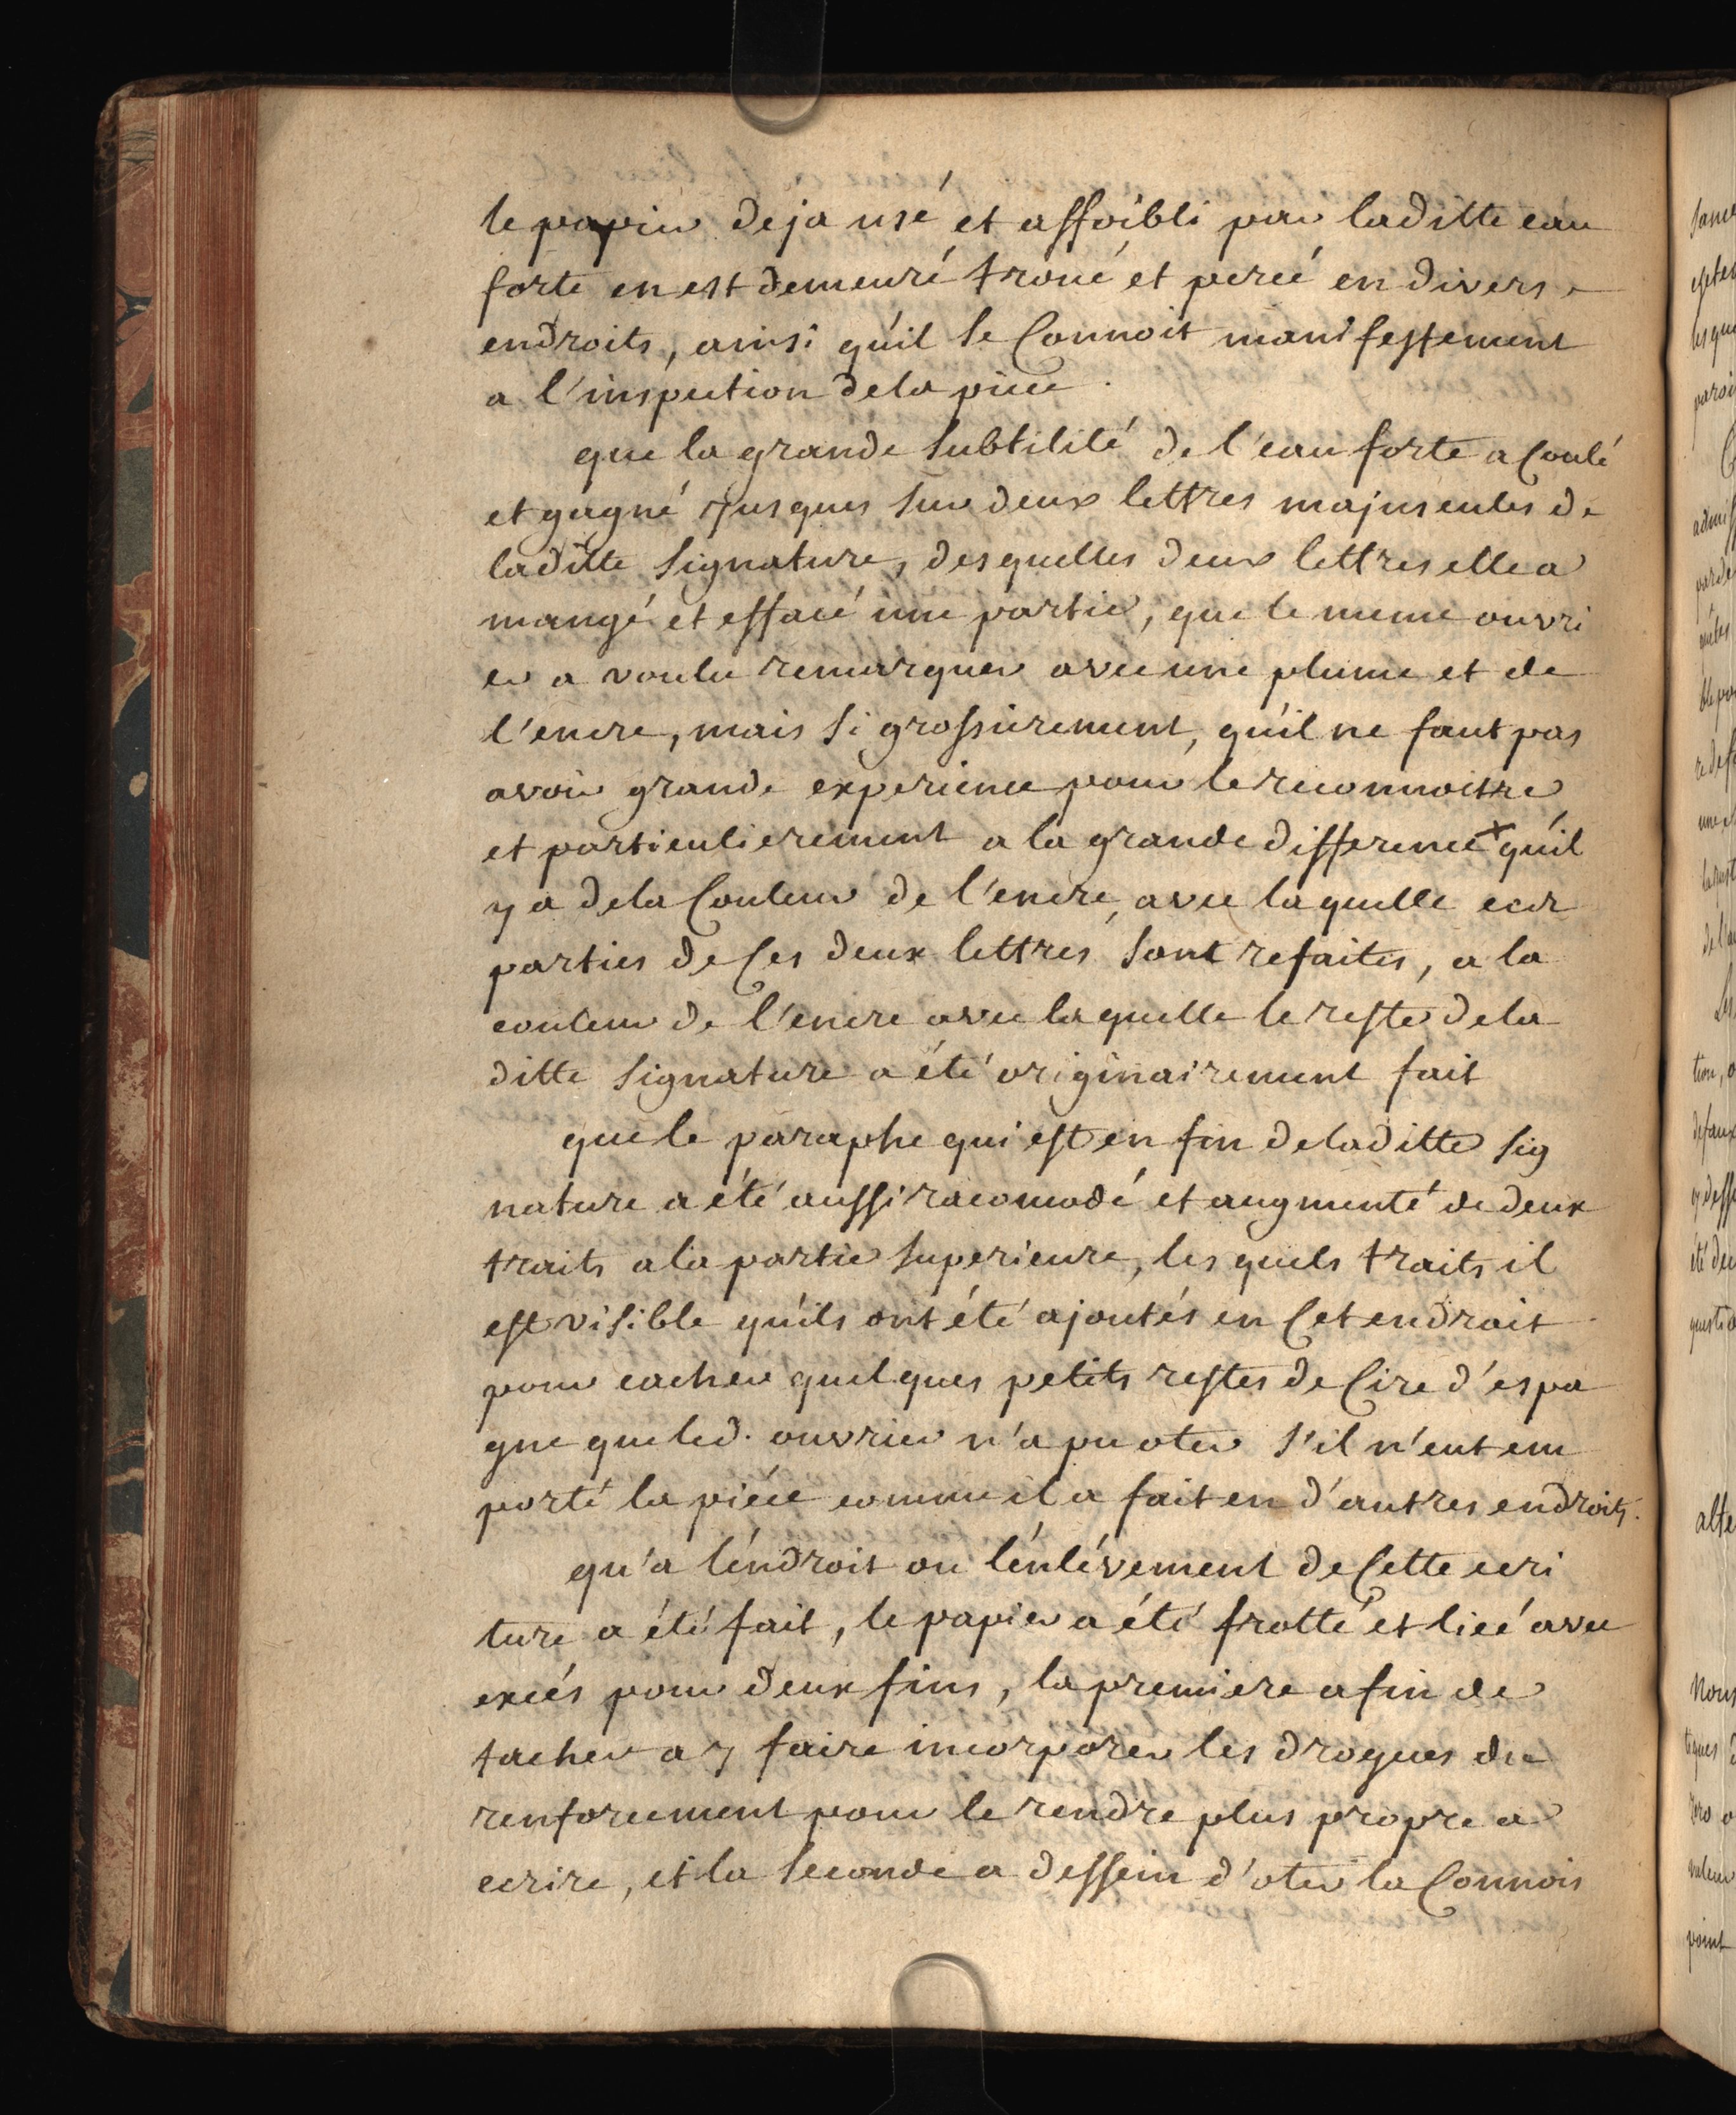 le papier deja usé et affoibli par laditte eau
forte en est demeuré troué et percé en divers
endroits, ainsi qu'il se Connoit manifestement
a l'inspection dela piece.
que la grande subtilité de l'eau forte a Coulé
et gagné jusques sur deux lettres majuscules de
laditte signature, desquelles deux lettres elle a
mangé et effacé une partie, que le meme ouvri
er a voulu remarquer avec une plume et de
l'encre, mais si grossierement, qu'il ne faut pas
avoir grande experience pour le reconnoitre
et particulierement a la grande difference qu'il
y a dela Couleur de l'encre, avec laquelle
parties de Ces deux lettres sont refaites, a la
couleur de l'encre avec laquelle le reste dela
ditte signature a été originairement fait
que le paraphe qui est en fin deladitte sig
nature a été aussi racomodé et augmenté de deux
traits a la partie superieure, lesquels traits il
est visible qu'ils ont été ajoutés en Cet endroit
pour cacher quelques petits restes de Cire d'espa
gne que led. ouvrier n'a pu oter s'il n'eut em
porté la piéce comme il a fait en d'autres endroits.
qu'a l'éndroit ou l'énlévement de Cette ecri
ture a été fait, le papier a été frotté et licé avec
excés pour deux fins, la premiere afin de
tacher a y faire incorporer les drogues du
renforcement pour le rendre plus propre a
ecrire, et la seconde a dessein d'oter la Connois